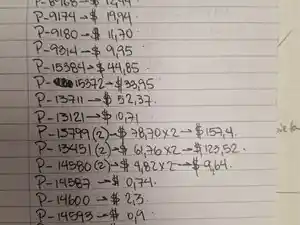 P-8968→$ 12,99
P-9174→$ 19,94
P-9180→$ 11,70
P-9314→$ 9,95
P-15384→$ 44,85
P-15372→$33,95
P-13711→$ 52,37.
P-13121→$ 10,71
P-13799(2)→$ 78,70×2→$157,4.
P-13451(2)→$ 61,76×2→$123,52.
P-14380(2)→$ 4,82×2→$9,64.
P-14387→$ 0,74.
P-14600→$ 2,3.
P-14593→$ 0,9.